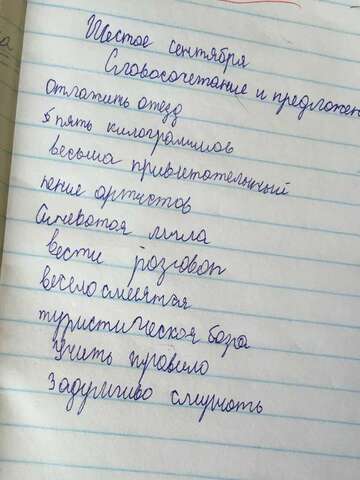 Шестое сентября
Словосочетание и предложен
отложить отезд
5 пять килограммов
весьма привитательный
пение артистов
Синеватая мгла
вести розговоп
весело смеятья
туристическая база
Учить правило
Задумчиво слушать